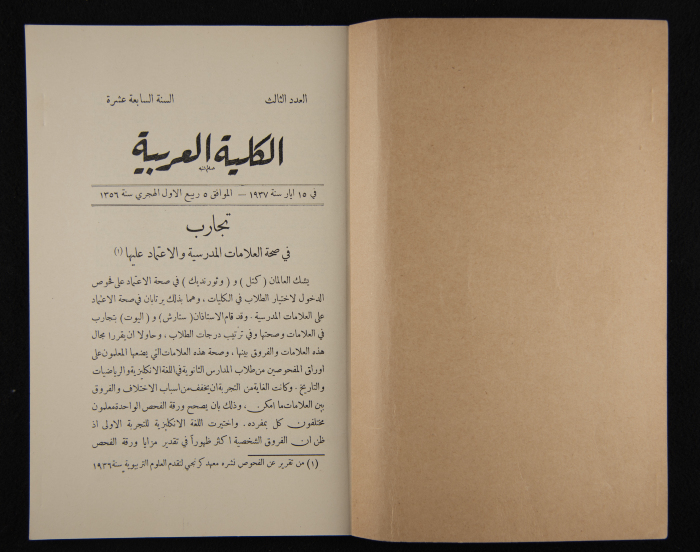 العدد الثالث السنة السابعة عشرة
الكلية العربية
في ١٥ ايار سنة ١٩٣٧ – الموافق ٥ ربيع الاول الهجري سنة ١٣٥٦
تجارب
في صحة العلامات المدرسية والاعتماد عليها (١)
يشك العالمان ( كتل ) و ( وثورنديك ) في صحة الاعتماد على فحوص
الدخول لاختيار الطلاب في الكليات ، وهما بذلك يرتابان في صحة الاعتماد
على العلامات المدرسية . وقد قام الاستاذان ( ستارش ) و ( اليوت ) بتجارب
في العلامات وصحتها وفي ترتيب درجات الطلاب ، وحاولا ان يقررا مجال
هذه العلامات والفروق بينها ، وصحة هذه العلامات التي يضعها المعلمون على
اوراق المفحوصين من طلاب المدارس الثانوية في اللغة الانكليزية والرياضيات
والتاريخ . وكانت الغاية من التجربة ان يخفف من اسباب الاختلاف والفروق
بين العلامات ما امكن ، وذلك بان يصحح ورقة الفحص الواحدة معلمون
مختلفون كل بمفرده . واختبرت اللغة الانكليزية للتجربة الاولى اذ
ظن ان الفروق الشخصية اكثر ظهوراً في تقدير مزايا ورقة الفحص
(١) من تقرير عن الفحوص نشره معهد كرنجي لتقدم العلوم التربيوية سنة ١٩٣٦